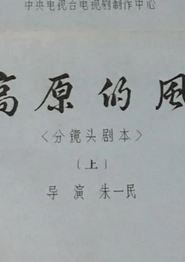 中央电视台电视剧制作中心
高原的风
<分镜头剧本>
(上)
导 演 朱一民